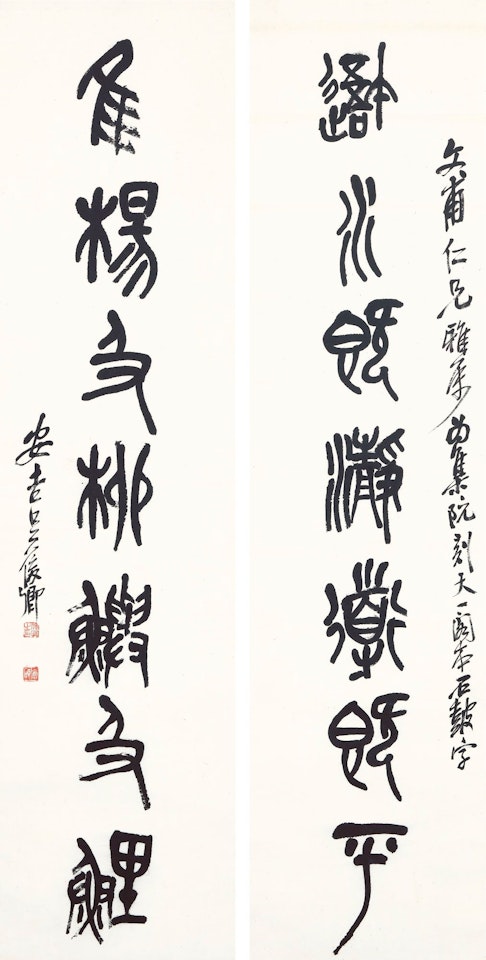 文甫仁兄雅屬為集阮刻天一閣本石鼓字
䢩水既瀞導既平
隹楊及柳鱮及鯉
安吉吳俊卿